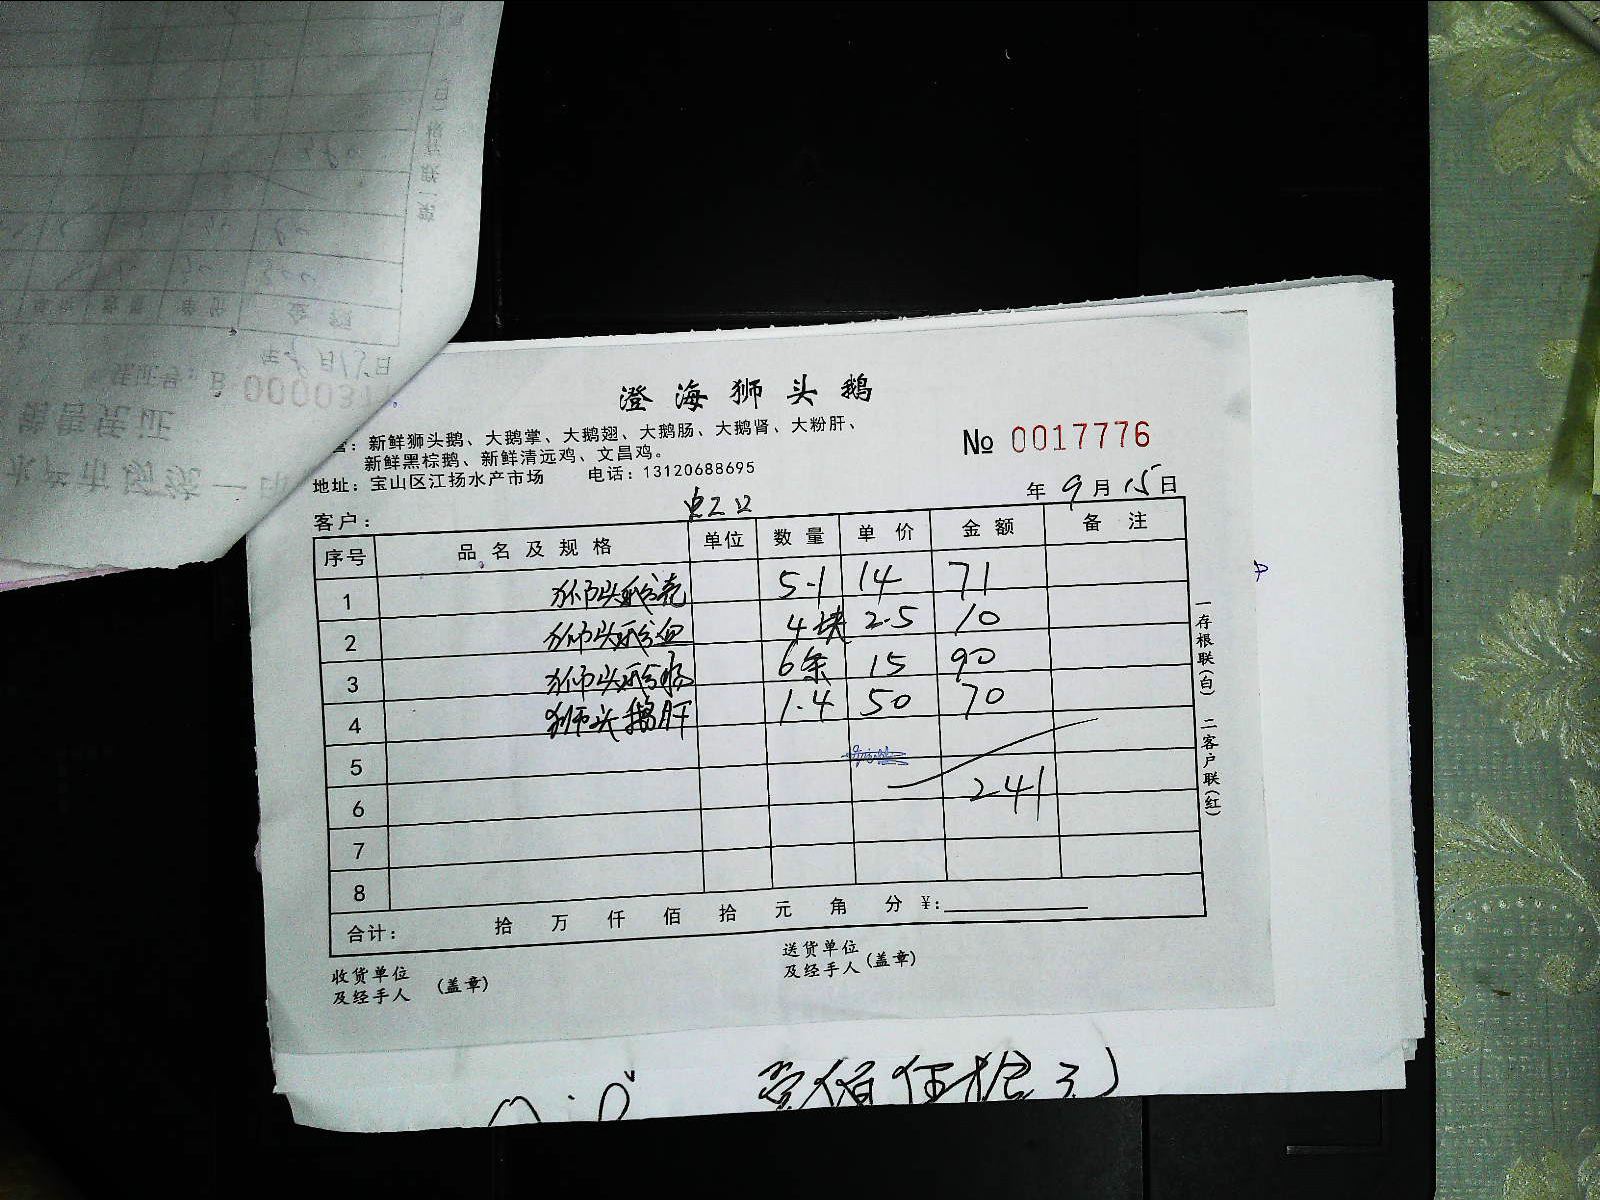 澄海狮头鹅
营：新鲜狮头鹅、大鹅掌、大鹅翅、大鹅肠、大鹅肾、大粉肝、
新鲜黑棕鹅、新鲜清远鸡、文昌鸡。
地址：宝山区江扬水产市场 电话：13120688695
№ 0017776
年 9 月 15 日
客户：
序号 品名及规格 单位 数量 单价 金额 备注
1 狮头鹅壳 5.1 14 71
2 狮头鹅血 4块 2.5 10
3 狮头鹅肠 6条 15 90
4 狮头鹅肝 1.4 50 70
5
6 241
7
8
合计： 拾 万 仟 佰 拾 元 角 分 ¥:
收货单位
及经手人 (盖章)
送货单位
及经手人 (盖章)
一存根联(白) 二客户联(红)